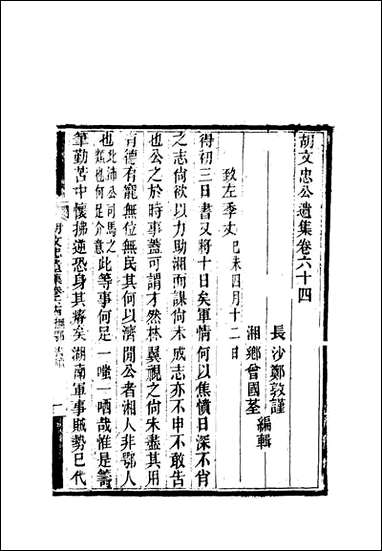 胡文忠公遺集卷六十四
長沙鄭敦謹
湘鄉曾國荃
編輯
致左季丈 己未四月十二日
得初三日書又將十日矣軍情何以焦憤日深不肖
之志尚欲以力助湘而謀尚未成志亦不申不敢告
也公之於時事蓋可謂才然林翼視之尚未盡其用
有德有寵無位無民其何以濟聞公者湘人非鄂人
也北沛公司馬之類也何足介意此等事何足一嗤一哂哉惟是籌
筆勤苦中懷拂逆恐身其瘠矣湖南軍事賊勢已代